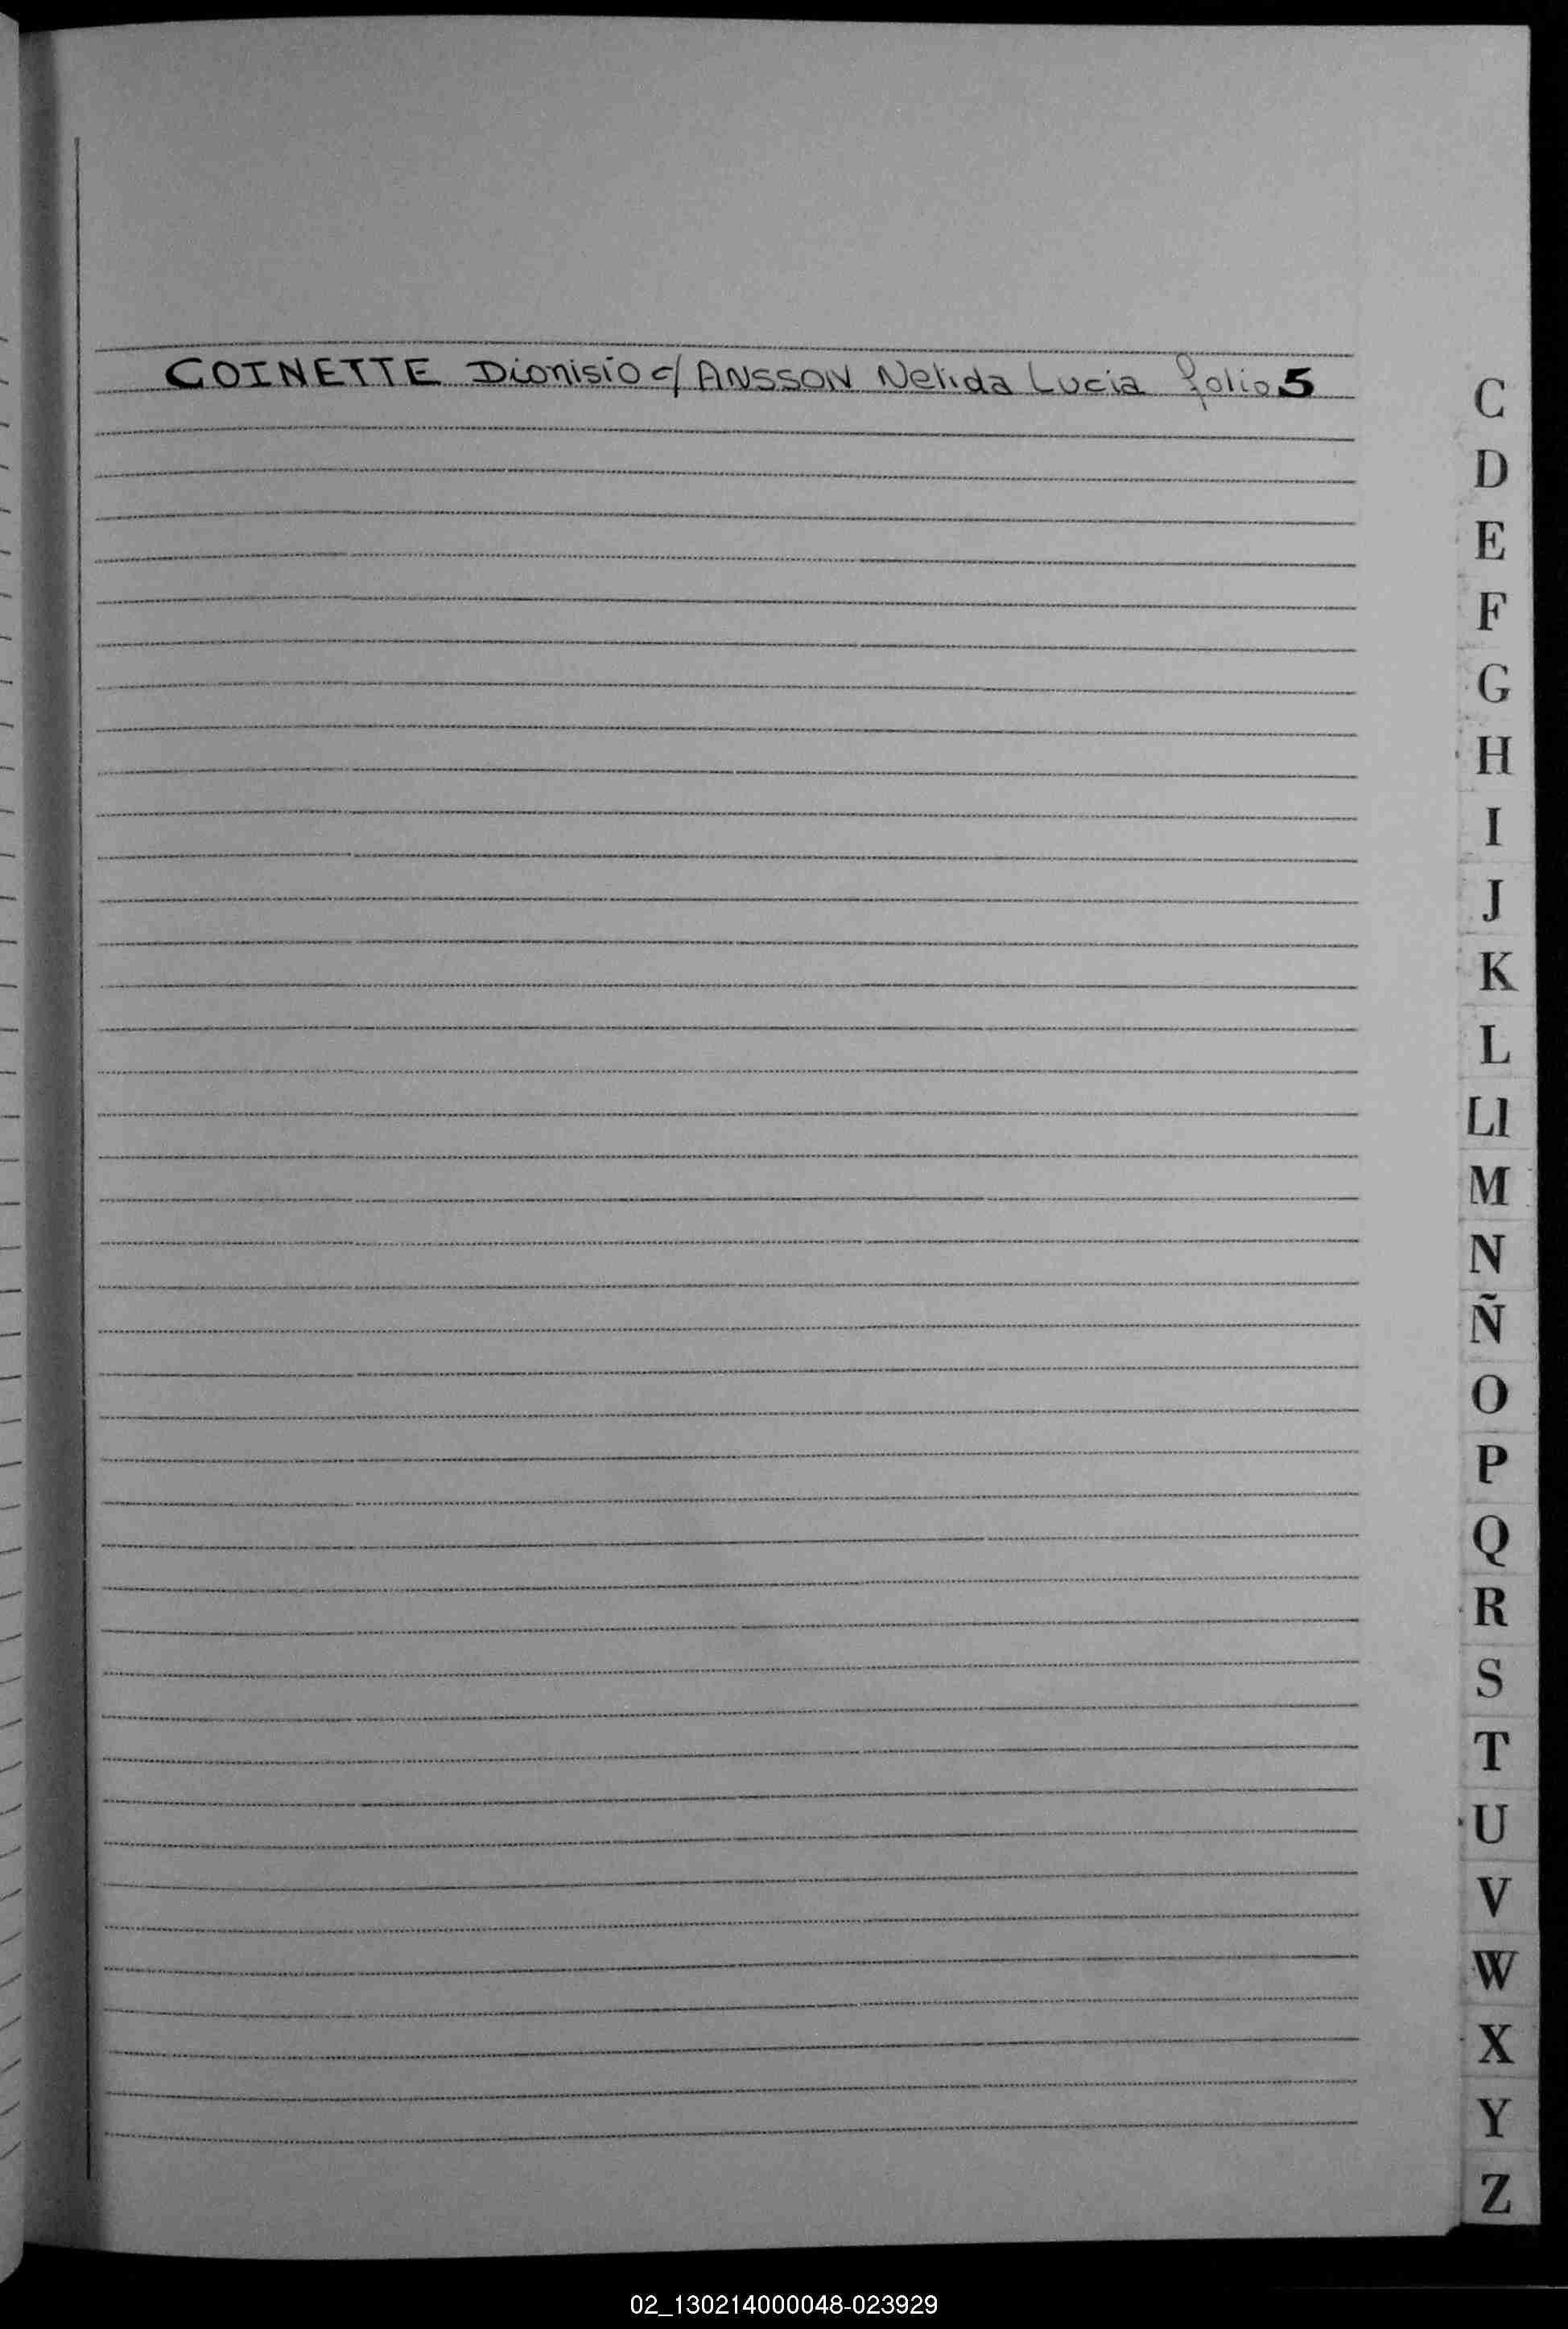 COINETTE Dionisio c/ ANSSON Nelida Lucia folio 5
C
D
E
F
G
H
I
J
K
L
Ll
M
N
Ñ
O
P
Q
R
S
T
U
V
W
X
Y
Z
02_130214000048-023929